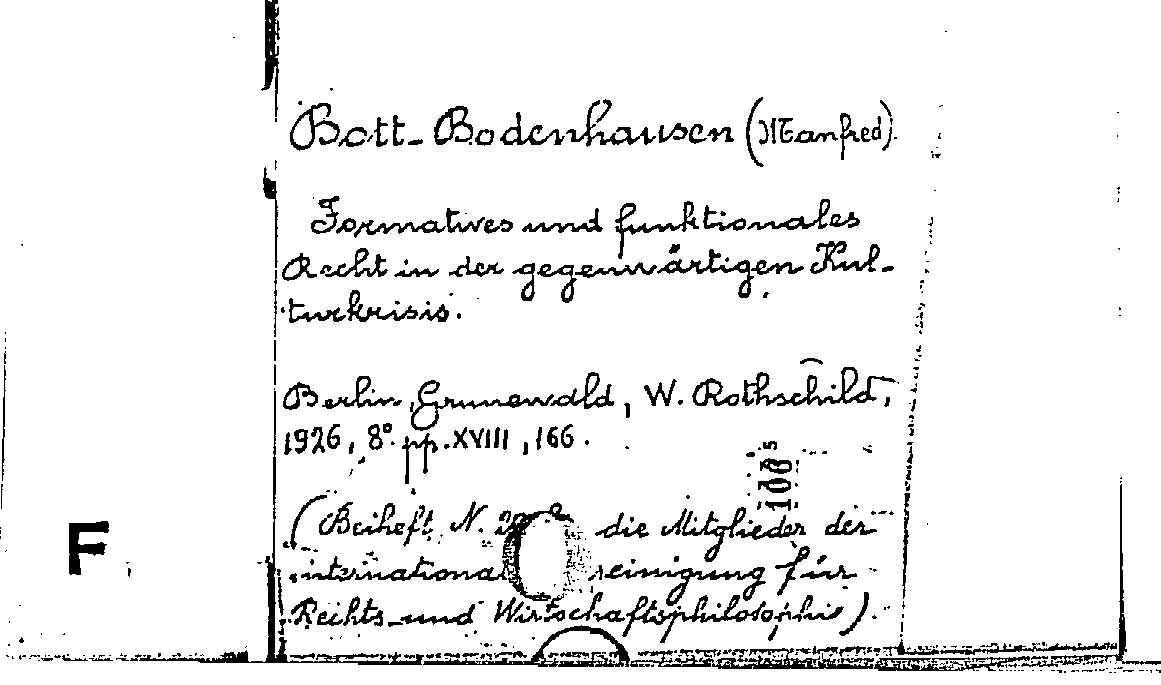 Bott-Bodenhausen (Manfred).
Formatives und funktionales
Recht in der gegenwärtigen Kul-
turkrisis.
Berlin, Grunewald, W. Rothschild,
1926, 8° pp. XVIII, 166.
(Beiheft N. die Mitglieder der
für
Rechts-und Wirtschaftsphilosophie).
F